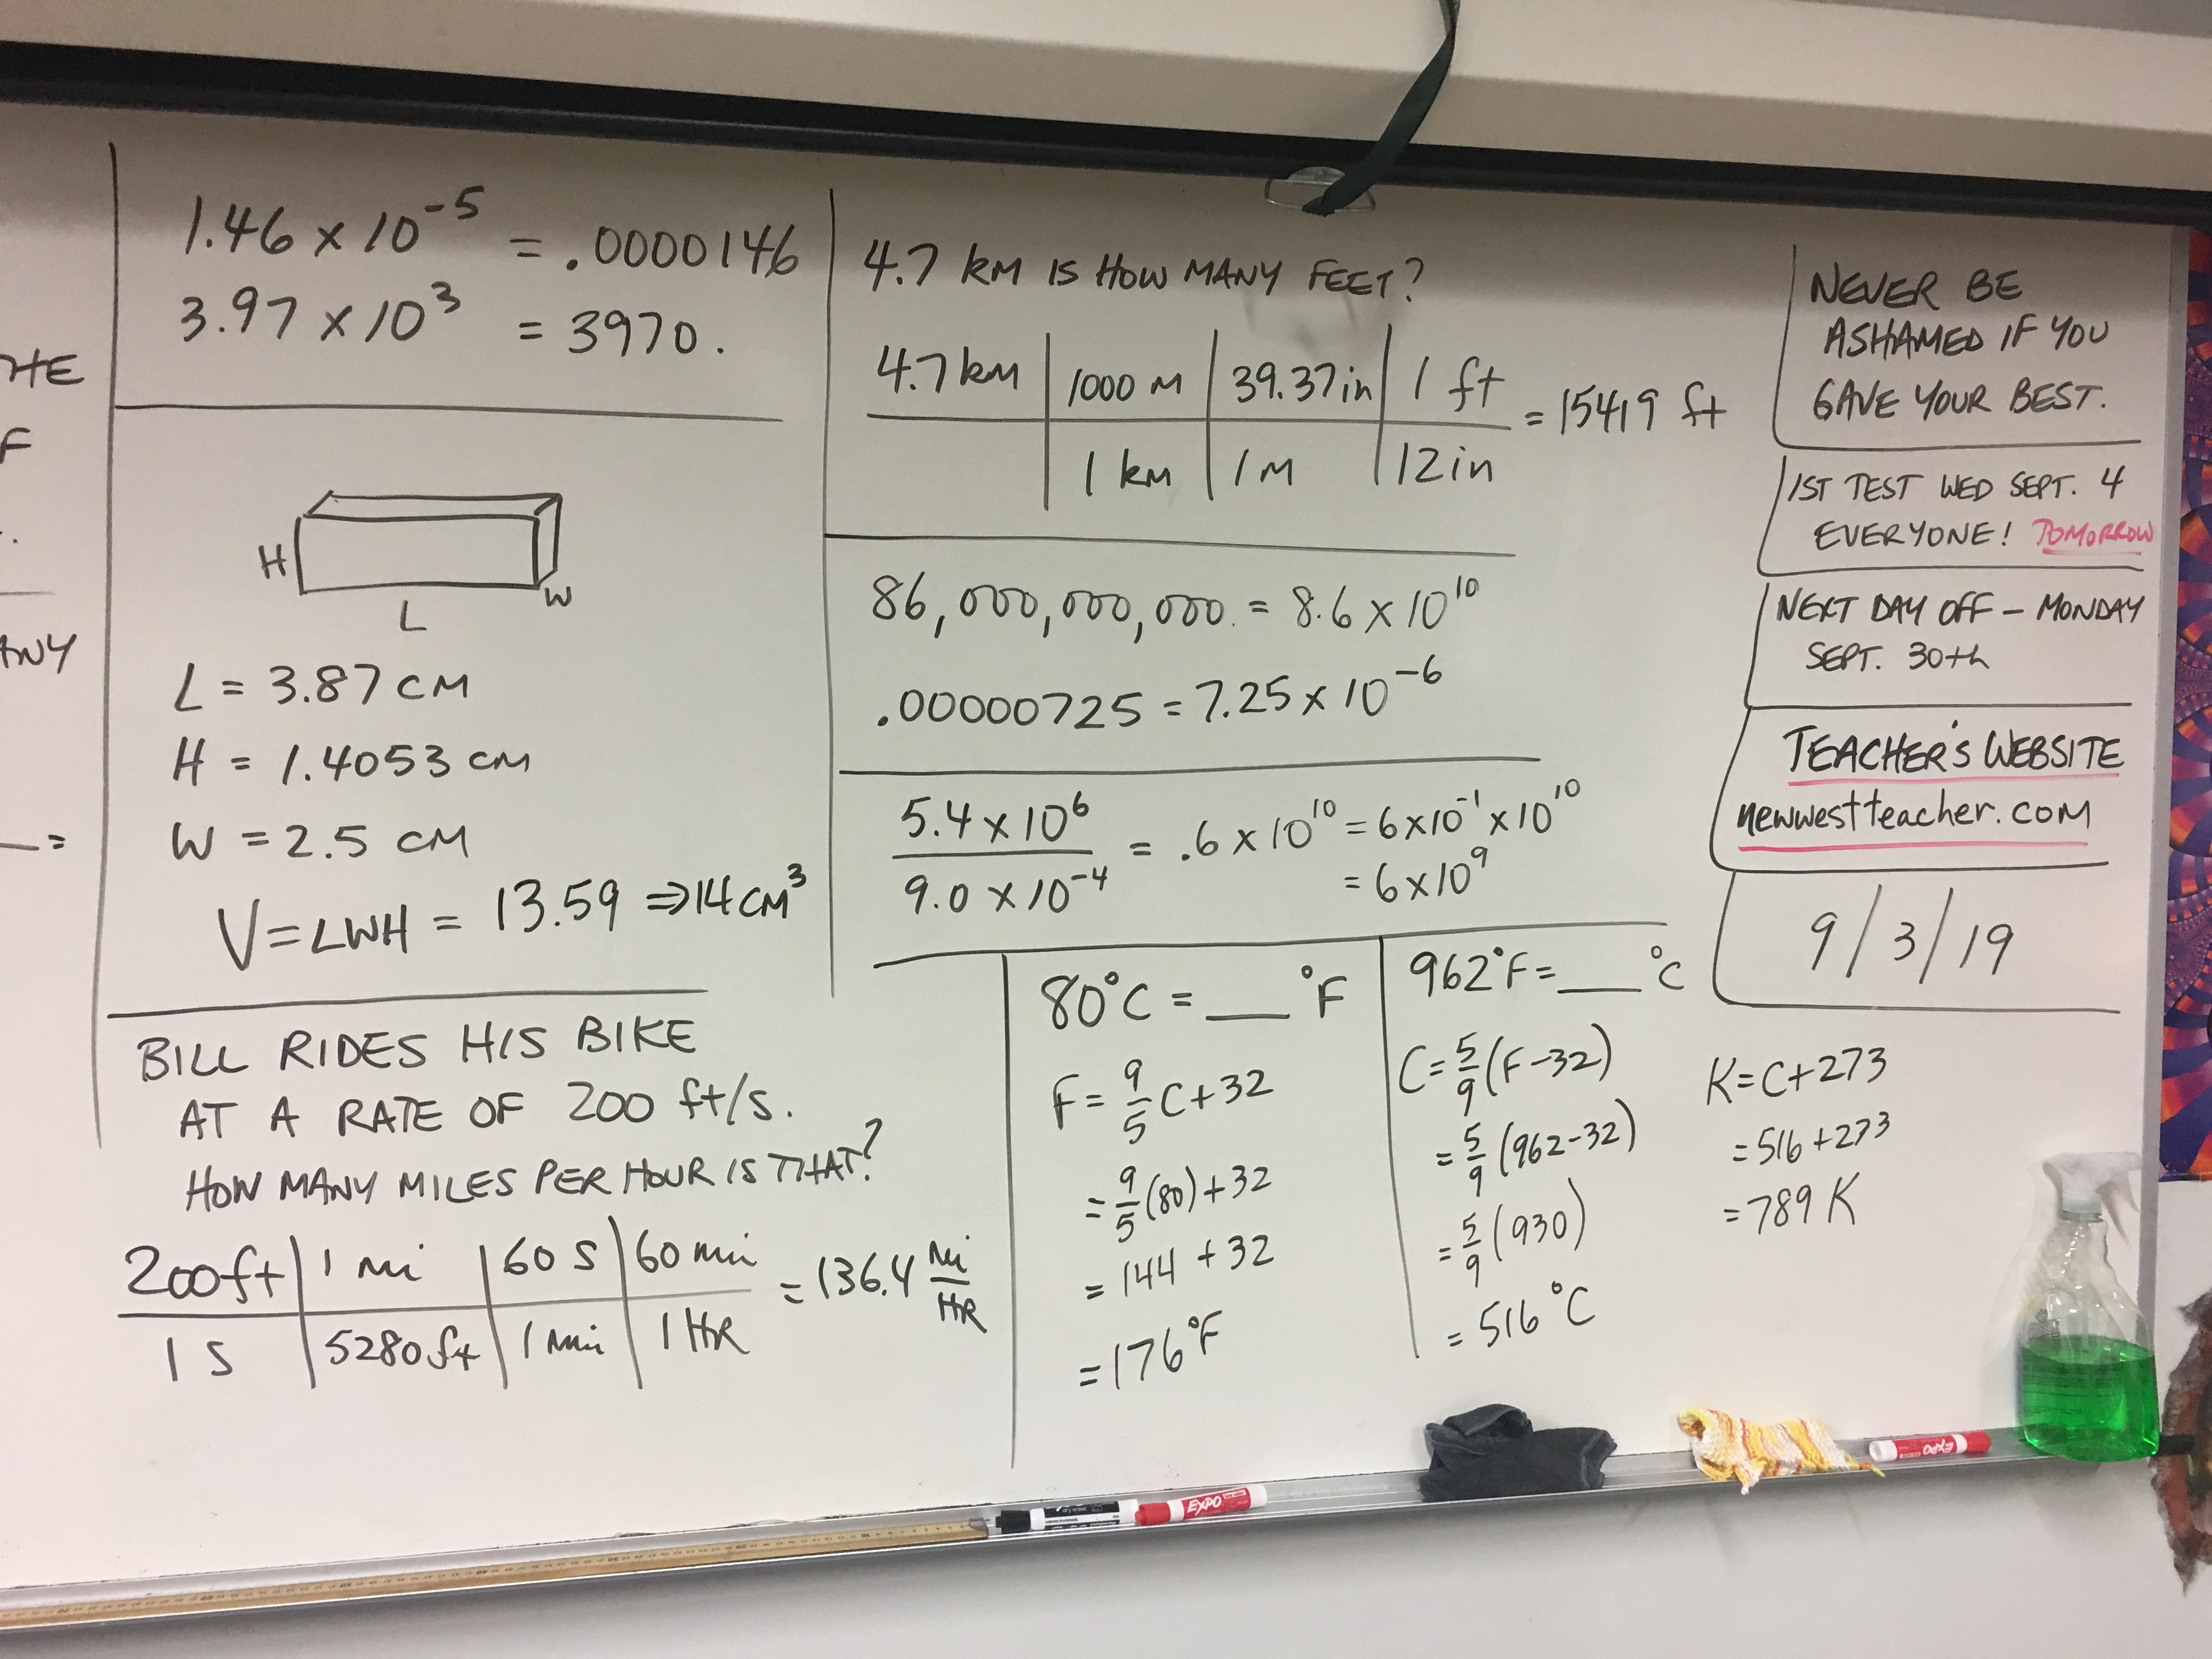 THE
F
ANY
=
1.46 x 10⁻⁵ = .0000146
3.97 x 10³ = 3970.
H
L
W
L = 3.87 CM
H = 1.4053 CM
W = 2.5 CM
V = LWH = 13.59 ⇒ 14 CM³
BILL RIDES HIS BIKE
AT A RATE OF 200 ft/s.
HOW MANY MILES PER HOUR IS THAT?
200 ft | 1 mi | 60 S | 60 min = 136.4 mi/HR
1 S | 5280 ft | 1 min | 1 HR
4.7 KM IS HOW MANY FEET?
4.7 km | 1000 M | 39.37 in | 1 ft = 15419 ft
1 km | 1 M | 12 in
86,000,000,000. = 8.6 x 10¹⁰
.00000725 = 7.25 x 10⁻⁶
5.4 x 10⁶ / 9.0 x 10⁻⁴ = .6 x 10¹⁰ = 6 x 10⁻¹ x 10¹⁰
= 6 x 10⁹
80°C = ___ °F
F = 9/5 C + 32
= 9/5 (80) + 32
= 144 + 32
= 176°F
962°F = ___ °C
C = 5/9 (F - 32)
= 5/9 (962 - 32)
= 5/9 (930)
= 516 °C
K = C + 273
= 516 + 273
= 789 K
NEVER BE
ASHAMED IF YOU
GAVE YOUR BEST.
1ST TEST WED SEPT. 4
EVERYONE! TOMORROW
NEXT DAY OFF – MONDAY
SEPT. 30th
TEACHER'S WEBSITE
newwestteacher.com
9/3/19
EXPO
EXPO